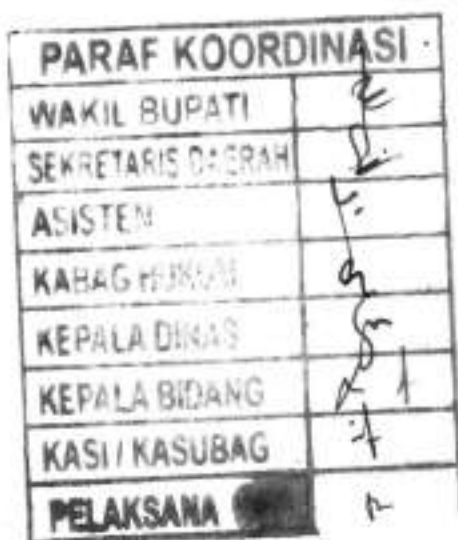 PARAF KOORDINASI
WAKIL BUPATI
SEKRETARIS DAERAH
ASISTEN
KABAG HUKUM
KEPALA DINAS
KEPALA BIDANG
KASI / KASUBAG
PELAKSANA